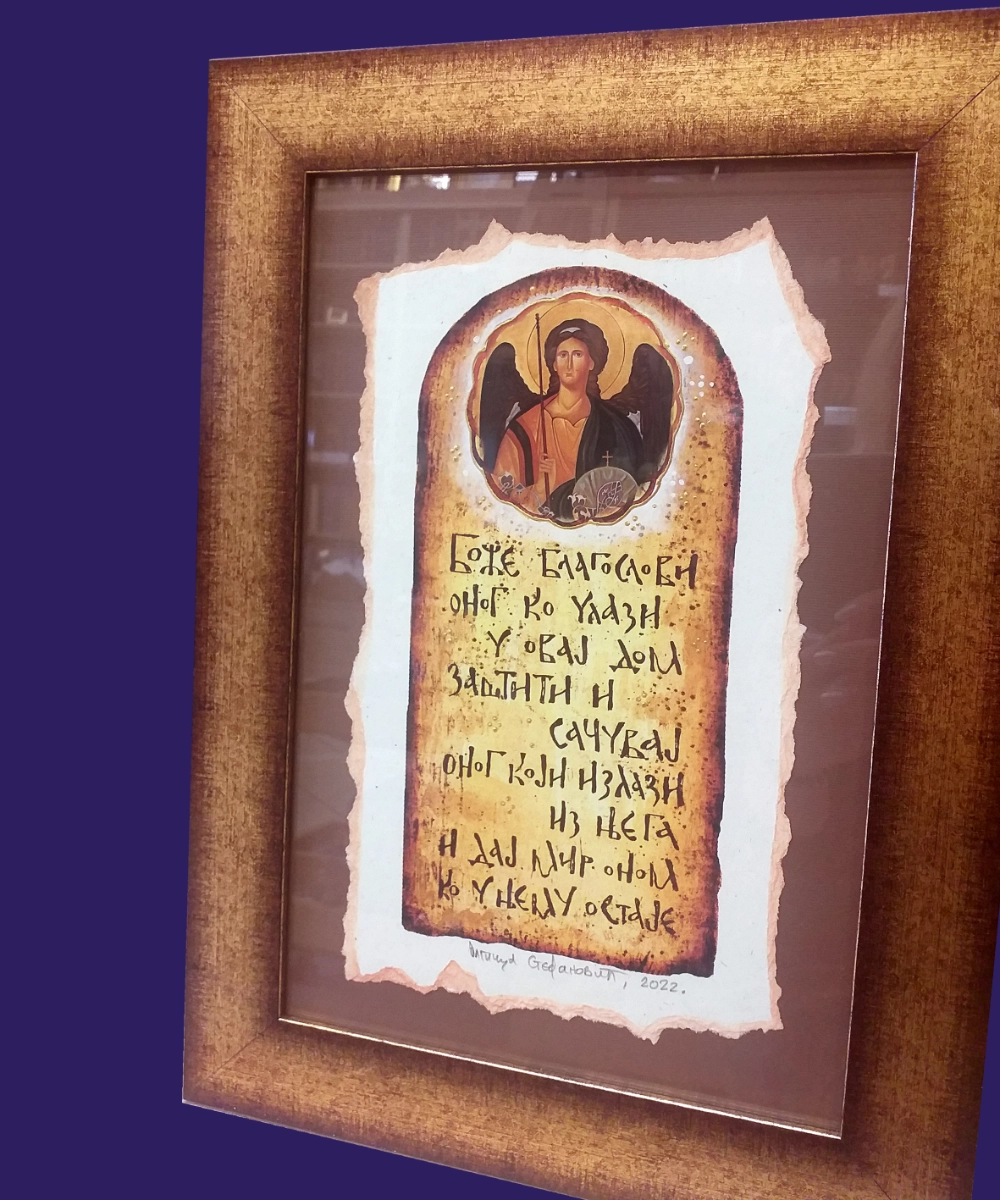 Боже благослови
оног ко улази
у овај дом
заштити и
сачувај
оног који излази
из њега
и дај мир оном
ко у њему остаје
Стефановић, 2022.